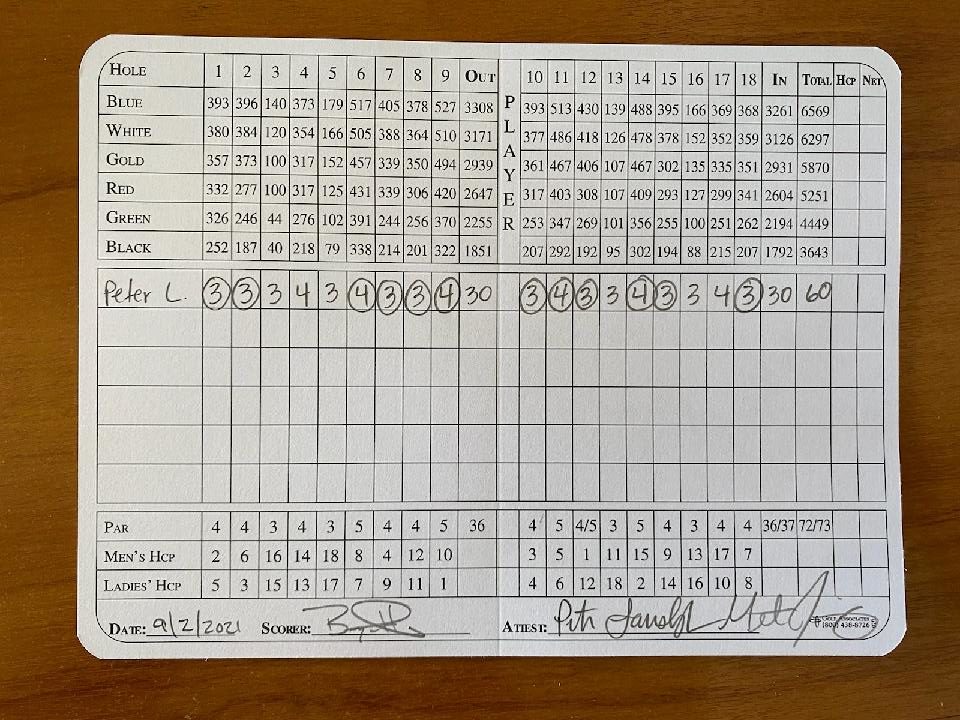 HOLE 1 2 3 4 5 6 7 8 9 OUT PLAYER 10 11 12 13 14 15 16 17 18 IN TOTAL HCP NET
BLUE 393 396 140 373 179 517 405 378 527 3308 393 513 430 139 488 395 166 369 368 3261 6569
WHITE 380 384 120 354 166 505 388 364 510 3171 377 486 418 126 478 378 152 352 359 3126 6297
GOLD 357 373 100 317 152 457 339 350 494 2939 361 467 406 107 467 302 135 335 351 2931 5870
RED 332 277 100 317 125 431 339 306 420 2647 317 403 308 107 409 293 127 299 341 2604 5251
GREEN 326 246 44 276 102 391 244 256 370 2255 253 347 269 101 356 255 100 251 262 2194 4449
BLACK 252 187 40 218 79 338 214 201 322 1851 207 292 192 95 302 194 88 215 207 1792 3643
Peter L. 3 3 3 4 3 4 3 3 4 30 3 4 3 3 4 3 3 4 3 30 60
PAR 4 4 3 4 3 5 4 4 5 36 4 5 4/5 3 5 4 3 4 4 36/37 72/73
MEN'S HCP 2 6 16 14 18 8 4 12 10 3 5 1 11 15 9 13 17 7
LADIES' HCP 5 3 15 13 17 7 9 11 1 4 6 12 18 2 14 16 10 8
DATE: 9/2/2021 SCORER: ATTEST:
(800) 438-8726